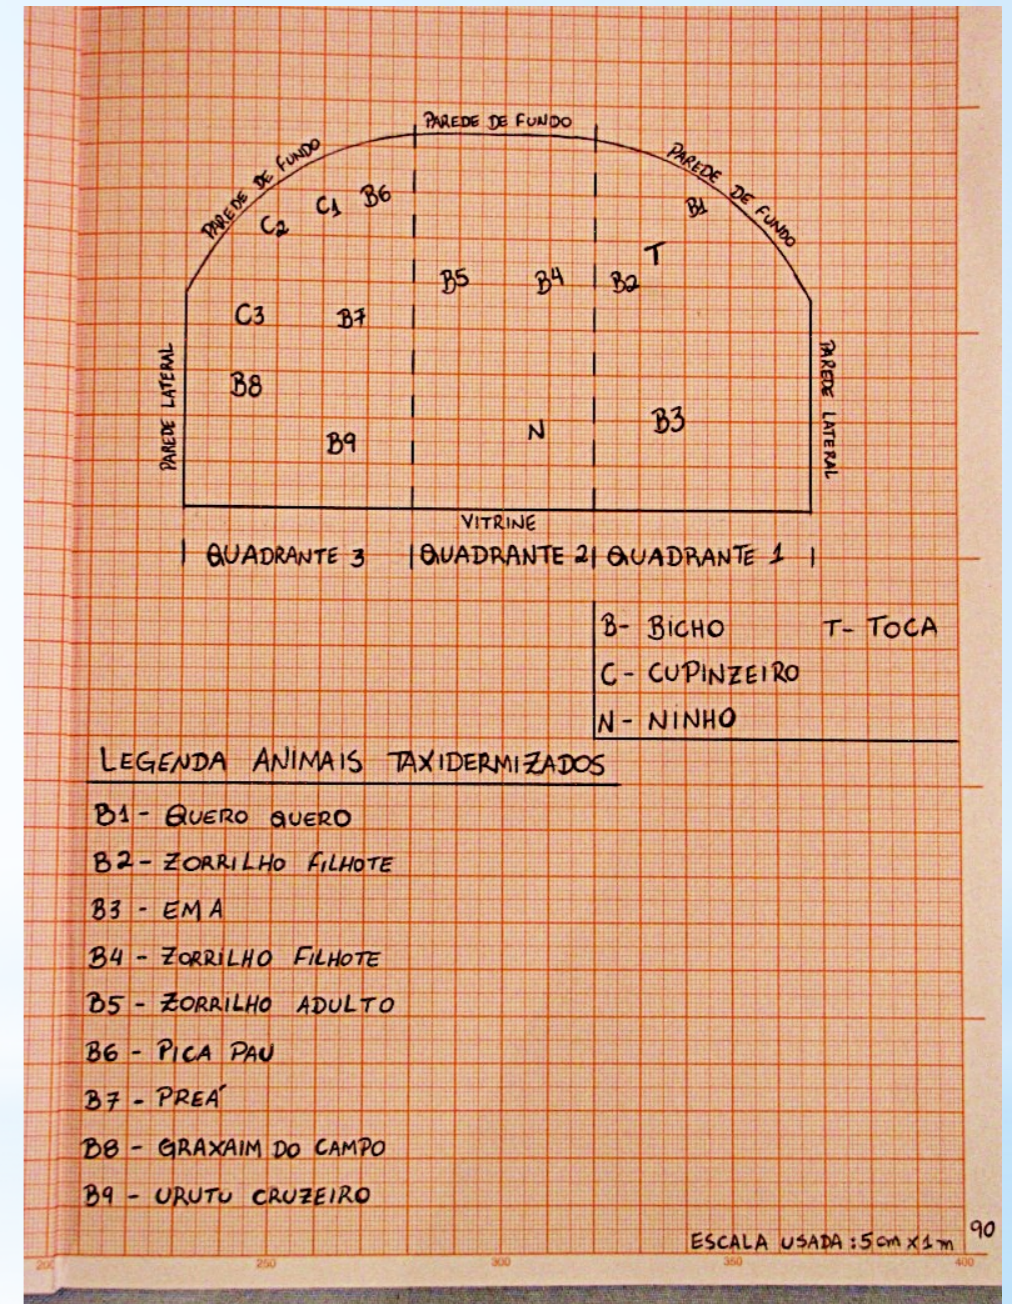 PAREDE DE FUNDO
PAREDE DE FUNDO
PAREDE DE FUNDO
C2
C1
B6
B1
T
B5
B4
B2
C3
B7
B8
B3
B9
N
PAREDE LATERAL
PAREDE LATERAL
VITRINE
QUADRANTE 3
QUADRANTE 2
QUADRANTE 1
B- BICHO T- TOCA
C - CUPINZEIRO
N - NINHO
LEGENDA ANIMAIS TAXIDERMIZADOS
B1 - QUERO QUERO
B2 - ZORRILHO FILHOTE
B3 - EMA
B4 - ZORRILHO FILHOTE
B5 - ZORRILHO ADULTO
B6 - PICA PAU
B7 - PREÁ
B8 - GRAXAIM DO CAMPO
B9 - URUTU CRUZEIRO
ESCALA USADA : 5 cm X 1 m
90
200 250 300 350 400